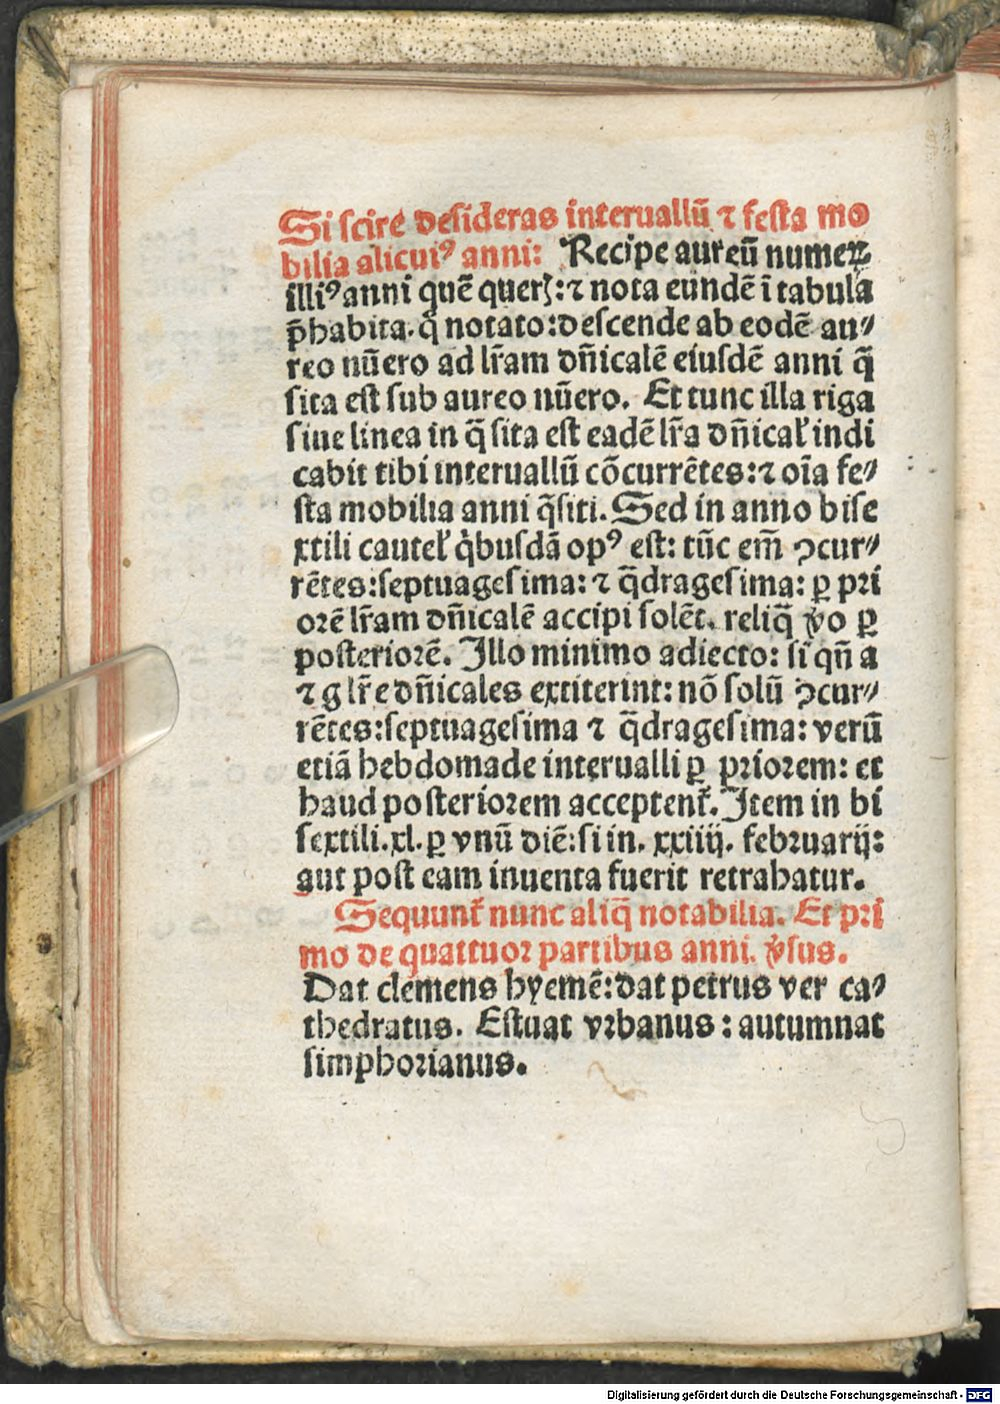 Si scire desideras interuallū ⁊ festa mo
bilia alicuiꝰ anni: Recipe aureū numeꝝ
illiꝰ anni quē querꝭ: ⁊ nota eundē ī tabula
p̄habita. q̄ notato: descende ab eodē au⸗
reo nūero ad lr̄am dn̄icalē eiusdē anni q̄
sita est sub aureo nūero. Et tunc illa riga
siue linea in q̄ sita est eadē lr̄a dn̄ical̛ indi
cabit tibi interuallū cōcurrētes: ⁊ oīa fe⸗
sta mobilia anni q̄siti. Sed in anno bise
xtili cautel̛ q̇busdā opꝰ est: tūc em̄ ꝯcur⸗
rētes: septuagesima: ⁊ q̄dragesima: ꝑ pri
orē lr̄am dn̄icalē accipi solēt. reliq̄ ꝟo ꝑ
posteriorē. Illo minimo adiecto: si qn̄ a
⁊ g lr̄e dn̄icales extiterint: nō solū ꝯcur⸗
rētes: septuagesima ⁊ q̄dragesima: verū
etiā hebdomade interualli ꝑ priorem: et
haud posteriorem acceptent᷑. Item in bi
sextili. xl. ꝑ vnū diē: si in. xxiiij. februarij:
aut post eam inuenta fuerit retrahatur.
Sequunt᷑ nunc aliq̄ notabilia. Et pri
mo de quattuor partibus anni. ꝟsus.
Dat clemens hyemē: dat petrus ver ca⸗
thedratus. Estuat vrbanus: autumnat
simphorianus.
Digitalisierung gefördert durch die Deutsche Forschungsgemeinschaft - DFG